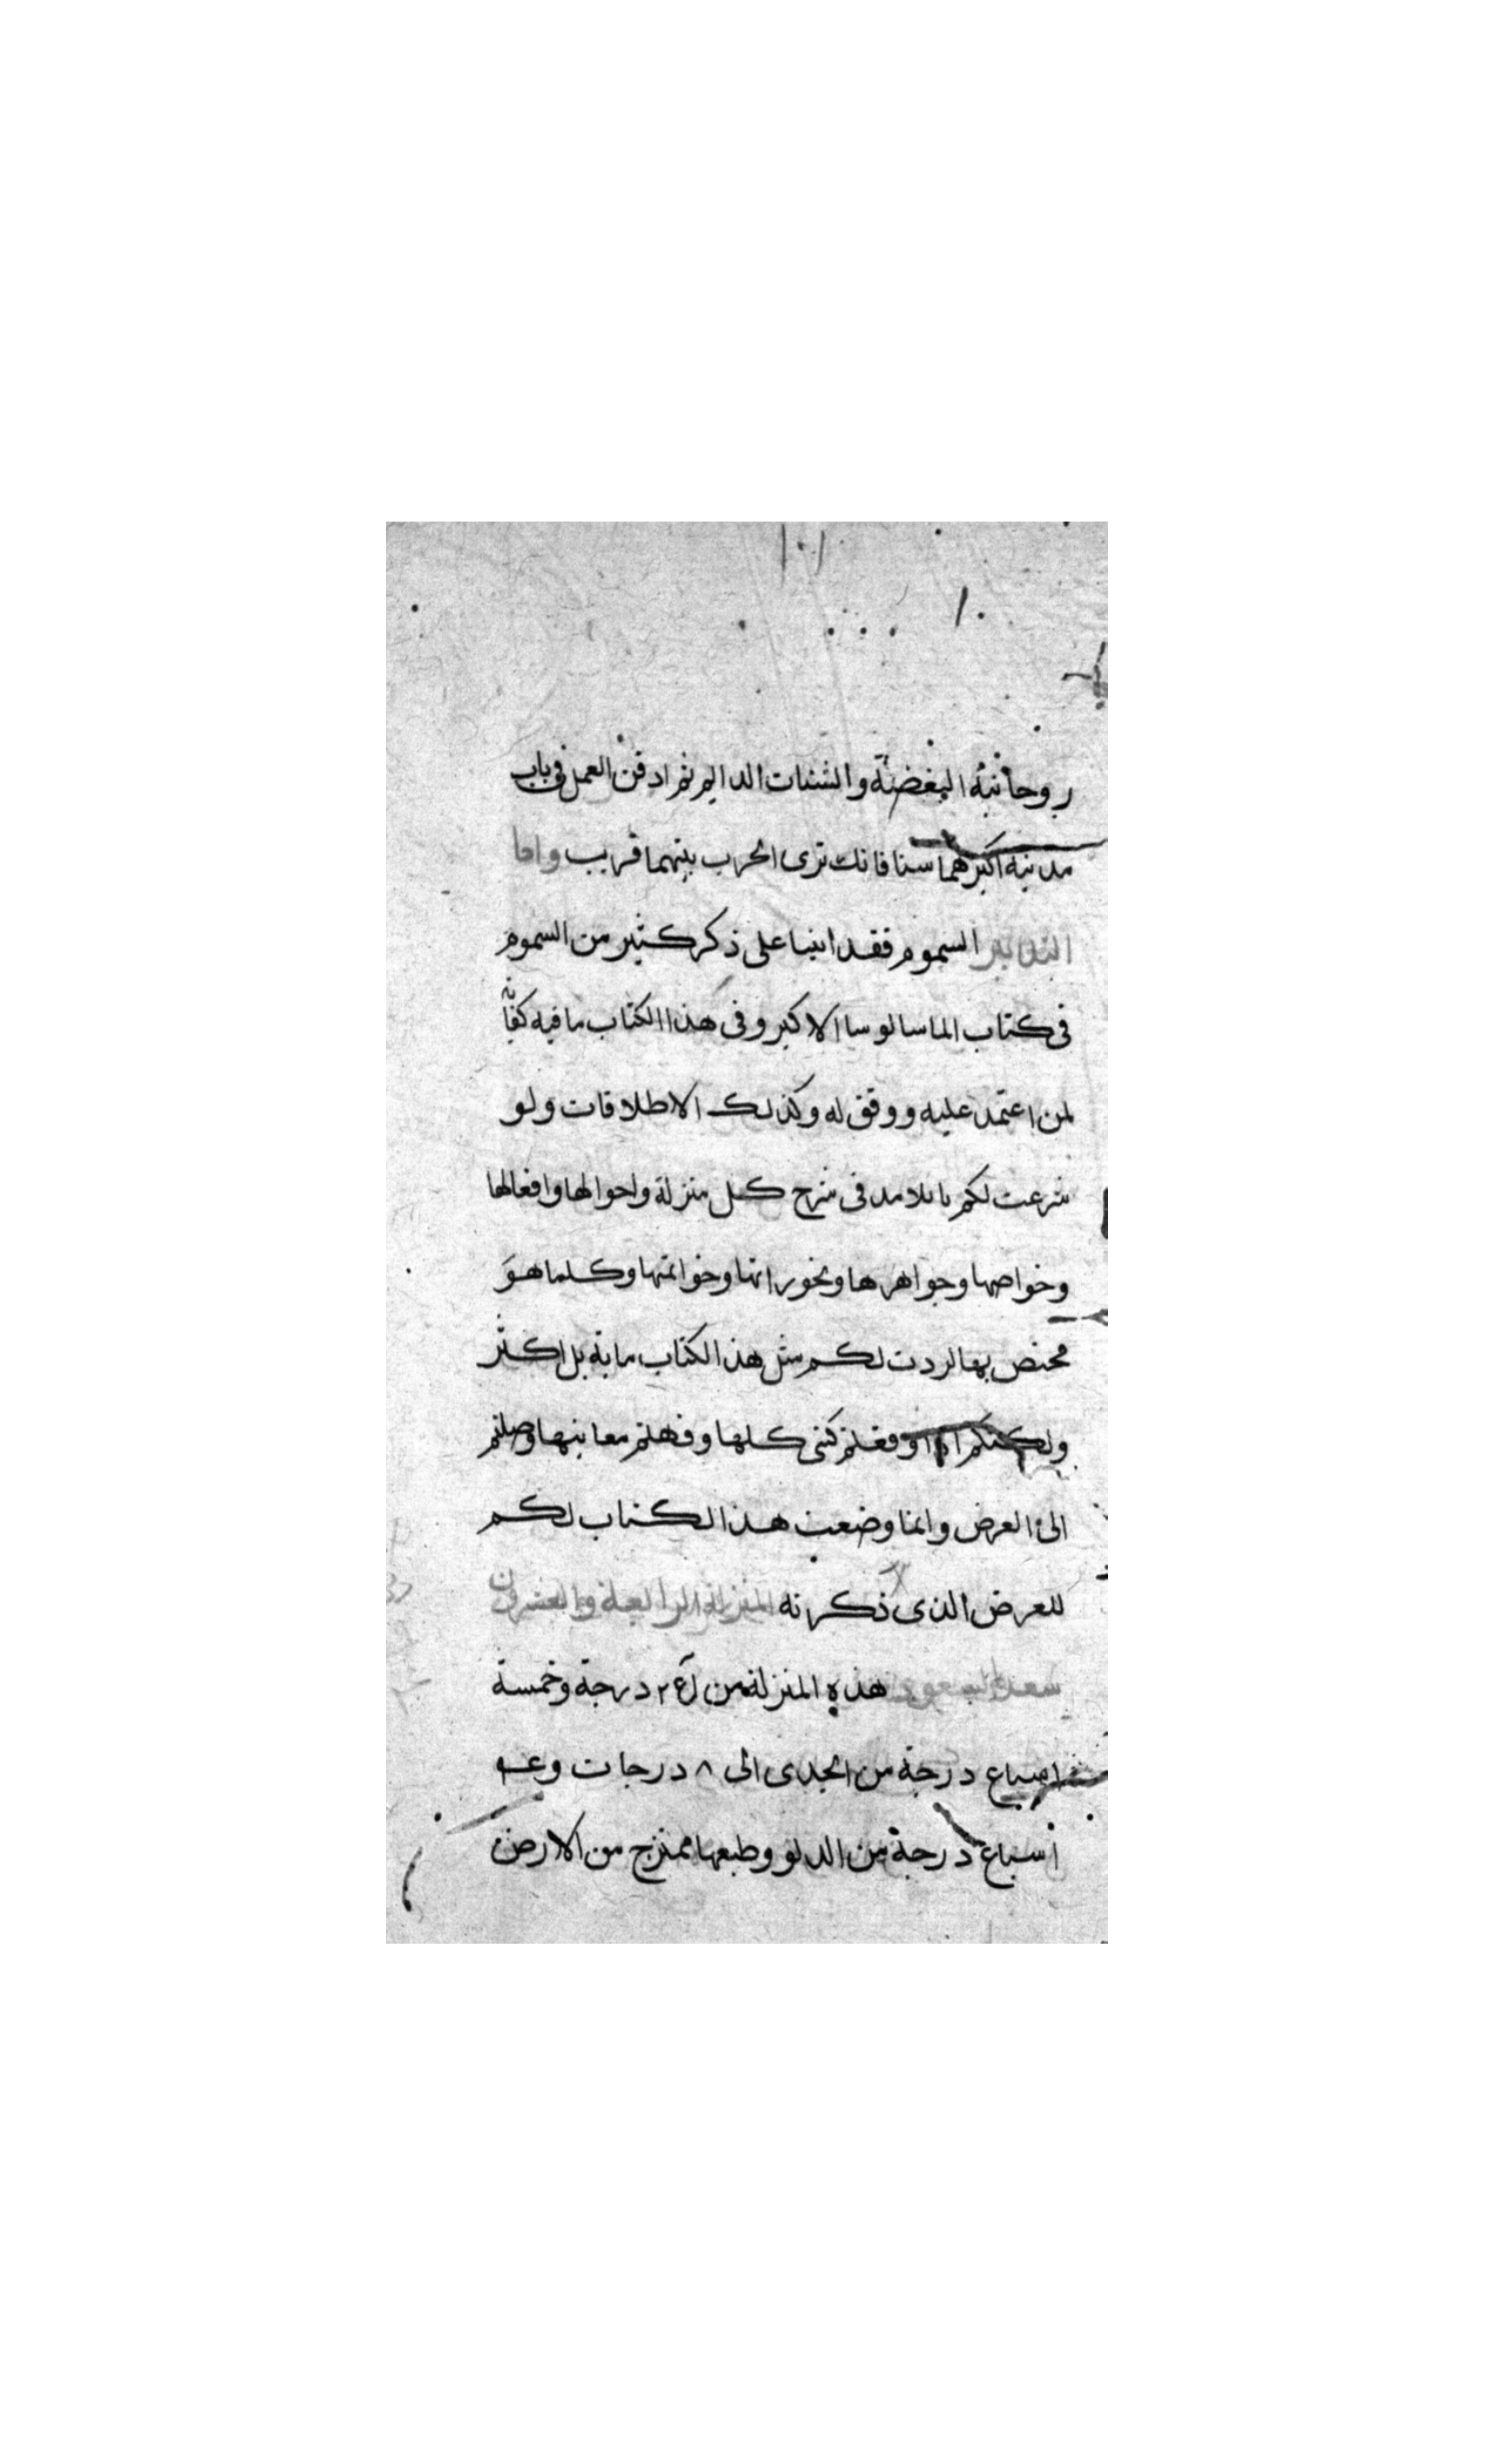 روحانية البغضة والشتات الدايم ثم ادفن العمل في باب
مدينة اكبرهما سنا فانك ترى الحرب بينهما قريب واما
التدابير السموم فقد اتينا على ذكر كثير من السموم
في كتاب الماسالوسا الاكبر وفى هذا الكتاب ما فيه
لمن اعتمد عليه ووقف له وكذلك الاطلاقات ولو
شرعت لكم في شرح كل منزلة واحوالها وافعالها
وخواصها وجواهرها وبخوراتها وخواتمها وكلما هوَ
مختص بها لردت لكم مثل هذا الكتاب ماية بل اكثر
ولكنكم اذا كتبى كلها وفهلتم معانيها وصلتم
الى العرض وانما وضعت هذا الكتاب لكم
للعرض الذى ذكرته المنزلة الرابعة والعشرون
سعد السعود هذه المنزلة من درجة وخمسة
اسباع درجة من الجدى الى ٨ درجات
اسباع درجة من الدلو وطبعها ممتزج من الارض